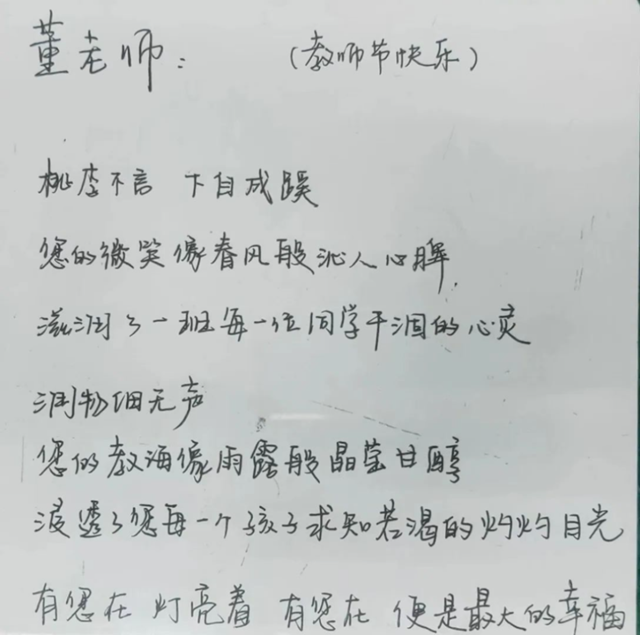 董老师： （教师节快乐）
桃李不言 下自成蹊
您的微笑像春风般沁人心脾，
滋润了一班每一位同学干涸的心灵
润物细无声
您的教海像雨露般晶莹甘醇
浸透了您每一个孩子求知若渴的灼灼目光
有您在 灯亮着 有您在 便是最大的幸福